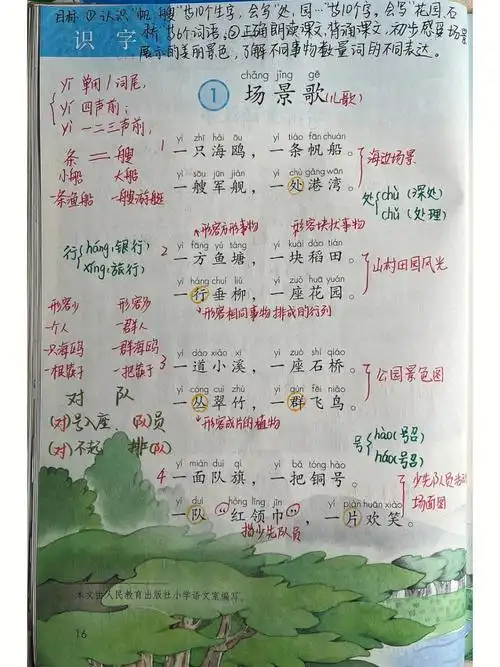 目标:①认识"帆、艘"等10个生字,会写"处、园…"等10个字,会写"花园、石
桥"等6个词语;②正确朗读课文,背诵课文,初步感受场景
展示的美丽景色,了解不同事物数量词的不同表达。
识字
chǎng jǐng gē
1 场景歌(儿歌)
yī 单间/词尾,
yí 四声前;
yì 一二三声前,
yì zhī hǎi ōu yì tiáo fān chuán
1 一只海鸥,一条帆船。
yì sōu jūn jiàn yí chù gǎng wān
一艘军舰,一处港湾。
海边场景
条 = 艘
小船 大船
一条渔船 一艘游艇
处 chù (深处)
chǔ (处理)
形容方形事物 形容块状事物
yì fāng yú táng yí kuài dào tián
2 一方鱼塘,一块稻田。
yì háng chuí liǔ yí zuò huā yuán
一行垂柳,一座花园。
形容相同事物排成的行列
山村田园风光
行 háng(银行)
xíng(旅行)
形容少 形容多
一个人 一群人
一只海鸥 一群海鸥
一根筷子 一把筷子
yí dào xiǎo xī yí zuò shí qiáo
3 一道小溪,一座石桥。
yì cóng cuì zhú yì qún fēi niǎo
一丛翠竹,一群飞鸟。
形容成片的植物
公园景色图
对 队
(对)号入座 (队)员
(对)不起 排(队)
号 hào(号召)
háo(号叫)
yí miàn duì qí yì bǎ tóng hào
4 一面队旗,一把铜号。
yí duì hóng lǐng jīn yí piàn huān xiào
一队"红领巾",一片欢笑。
指少先队员
少先队员活动
场面图
本文由人民教育出版社小学语文室编写。
16